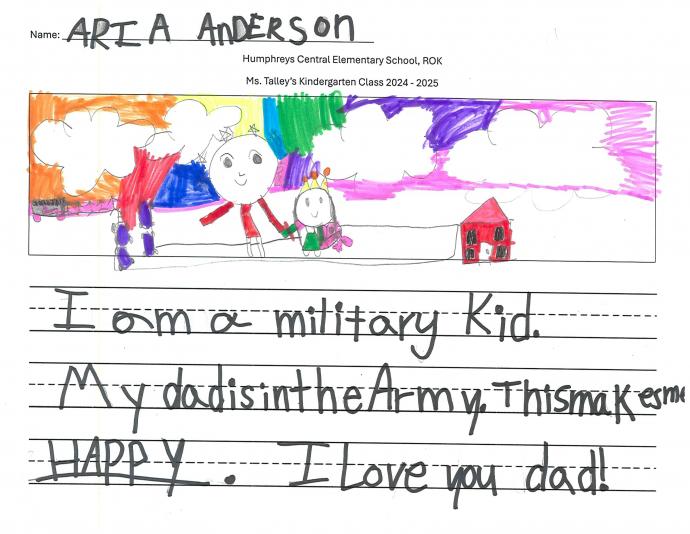 Name: ARIA ANDERSON
Humphreys Central Elementary School, ROK
Ms. Talley's Kindergarten Class 2024 - 2025
I am a military Kid.
My dad is in the Army. This makes me
HAPPY. I Love you dad!